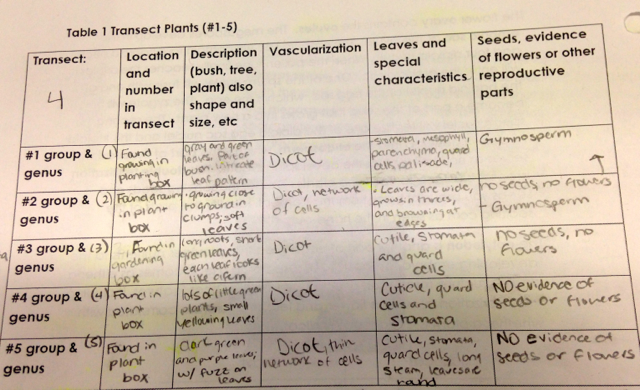 Table 1 Transect Plants (#1-5)
Transect:
4
Location
and
number
in
transect
Description
(bush, tree,
plant) also
shape and
size, etc
Vascularization
Leaves and
special
characteristics
Seeds, evidence
of flowers or other
reproductive
parts
#1 group & (1)
genus
Found
growing in
planting
box
gray and green
leaves. Part of
bush. intricate
leaf pattern
Dicot
-stomata, mesophyll,
parenchyma, guard
cells, palisade,
Gymnosperm
#2 group & (2)
genus
Found growing
in plant
box
growing close
to ground in
clumps, soft
leaves
Dicot, network
of cells
Leaves are wide,
grows in threes,
and browning at
edges
no seeds, no flowers
- Gymnosperm
#3 group & (3)
genus
Found in
gardening
box
long roots, short
green leaves,
each leaf looks
like
Dicot
Cutile, Stomata
and guard
cells
no seeds, no
flowers
#4 group & (4)
genus
Found in
plant
box
lots of little green
plants, small
yellowing leaves
Dicot
Cuticle, guard
cells and
Stomata
NO evidence of
seeds or flowers
#5 group & (5)
genus
Found in
plant
box
dark green
and purple leaves,
w/ fuzz on
leaves
Dicot, thin
network of cells
Cutile, stomata,
guard cells, long
steam, leaves are
round
NO evidence of
seeds or flowers